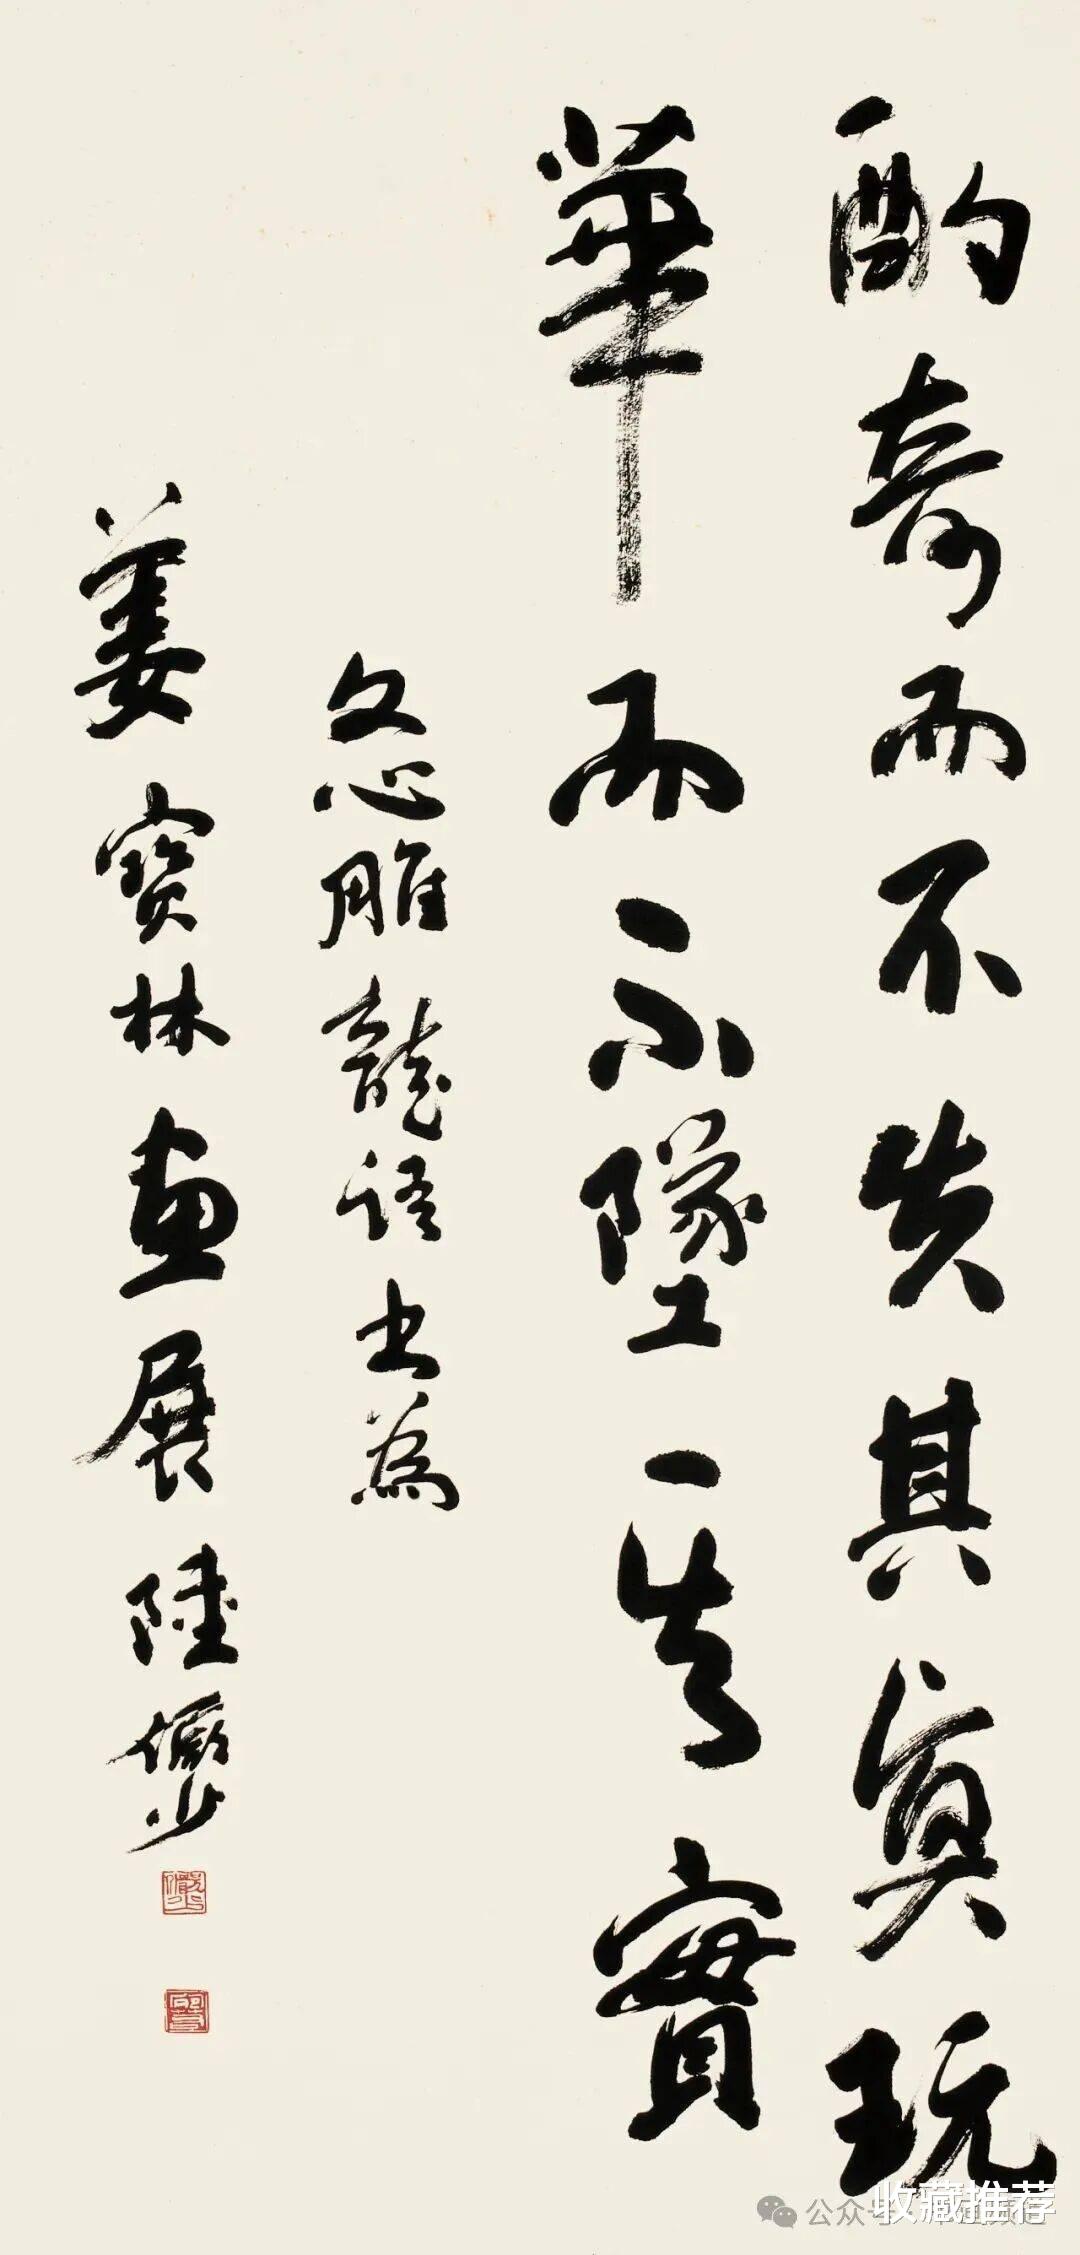 酌奇而不失其真玩
華而不墜其實
文心雕龍語書為
姜寶林畫展陸儼少
公众号
收藏推荐